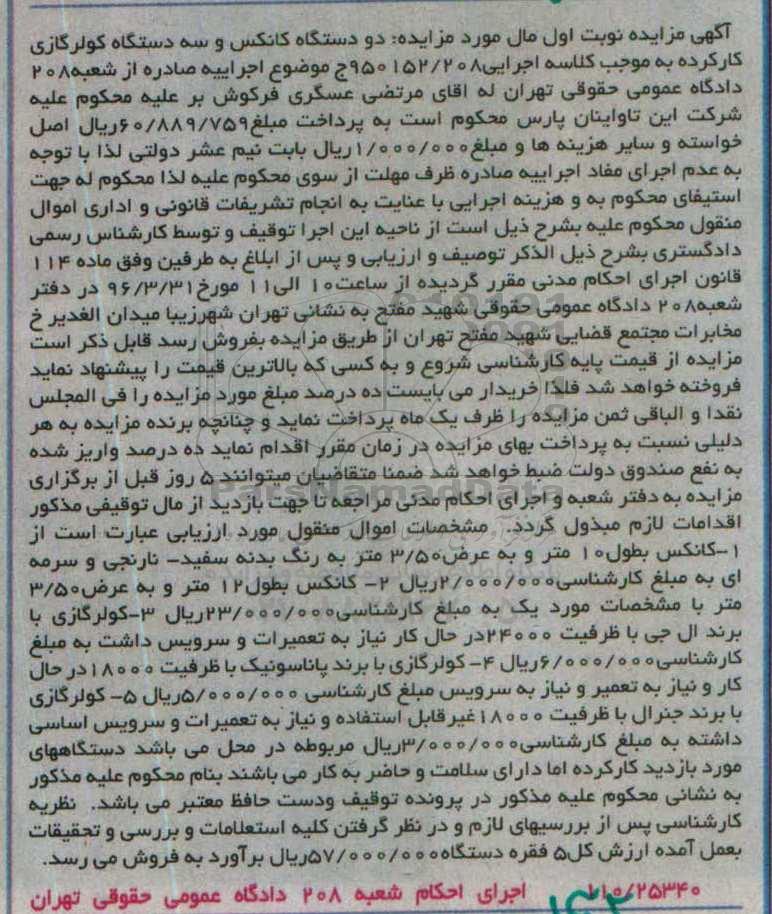 آگهی مزایده نوبت اول مال مورد مزایده: دو دستگاه کانکس و سه دستگاه کولرگازی
کارکرده به موجب کلاسه اجرایی۹۵۰۱۵۲/۲۰۸ج موضوع اجراییه صادره از شعبه۲۰۸
دادگاه عمومی حقوقی تهران له اقای مرتضی عسگری فرکوش بر علیه محکوم علیه
شرکت این تاواینان پارس محکوم است به پرداخت مبلغ۶۰/۸۸۹/۷۵۹ریال اصل
خواسته و سایر هزینه ها و مبلغ۱/۰۰۰/۰۰۰ریال بابت نیم عشر دولتی لذا با توجه
به عدم اجرای مفاد اجراییه صادره ظرف مهلت از سوی محکوم علیه لذا محکوم له جهت
استیفای محکوم به و هزینه اجرایی با عنایت به انجام تشریفات قانونی و اداری اموال
منقول محکوم علیه بشرح ذیل است از ناحیه این اجرا توقیف و توسط کارشناس رسمی
دادگستری بشرح ذیل الذکر توصیف و ارزیابی و پس از ابلاغ به طرفین وفق ماده ۱۱۴
قانون اجرای احکام مدنی مقرر گردیده از ساعت۱۰ الی۱۱ مورخ۹۶/۳/۳۱ در دفتر
شعبه۲۰۸ دادگاه عمومی حقوقی شهید مفتح به نشانی تهران شهرزیبا میدان الغدیر خ
مخابرات مجتمع قضایی شهید مفتح تهران از طریق مزایده بفروش رسد قابل ذکر است
مزایده از قیمت پایه کارشناسی شروع و به کسی که بالاترین قیمت را پیشنهاد نماید
فروخته خواهد شد فلذا خریدار می بایست ده درصد مبلغ مورد مزایده را فی المجلس
نقدا و الباقی ثمن مزایده را ظرف یک ماه پرداخت نماید و چنانچه برنده مزایده به هر
دلیلی نسبت به پرداخت بهای مزایده در زمان مقرر اقدام نماید ده درصد واریز شده
به نفع صندوق دولت ضبط خواهد شد ضمنا متقاضیان میتوانند ۵ روز قبل از برگزاری
مزایده به دفتر شعبه و اجرای احکام مدنی مراجعه تا جهت بازدید از مال توقیفی مذکور
اقدامات لازم مبذول گردد. مشخصات اموال منقول مورد ارزیابی عبارت است از
۱-کانکس بطول۱۰ متر و به عرض۳/۵۰ متر به رنگ بدنه سفید- نارنجی و سرمه
ای به مبلغ کارشناسی۲/۰۰۰/۰۰۰ریال ۲- کانکس بطول۱۲ متر و به عرض۳/۵۰
متر با مشخصات مورد یک به مبلغ کارشناسی۲۳/۰۰۰/۰۰۰ریال ۳-کولرگازی با
برند ال جی با ظرفیت ۲۴۰۰۰در حال کار نیاز به تعمیرات و سرویس داشت به مبلغ
کارشناسی۶/۰۰۰/۰۰۰ریال ۴- کولرگازی با برند پاناسونیک با ظرفیت ۱۸۰۰۰درحال
کار و نیاز به تعمیر و نیاز به سرویس مبلغ کارشناسی ۵/۰۰۰/۰۰۰ریال ۵- کولرگازی
با برند جنرال با ظرفیت ۱۸۰۰۰غیرقابل استفاده و نیاز به تعمیرات و سرویس اساسی
داشته به مبلغ کارشناسی۳/۰۰۰/۰۰۰ریال مربوطه در محل می باشد دستگاههای
مورد بازدید کارکرده اما دارای سلامت و حاضر به کار می باشند بنام محکوم علیه مذکور
به نشانی محکوم علیه مذکور در پرونده توقیف ودست حافظ معتبر می باشد. نظریه
کارشناسی پس از بررسیهای لازم و در نظر گرفتن کلیه استعلامات و بررسی و تحقیقات
بعمل آمده ارزش کل۵ فقره دستگاه۵۷/۰۰۰/۰۰۰ریال برآورد به فروش می رسد.
۱۱۰/۲۵۳۴۰ اجرای احکام شعبه ۲۰۸ دادگاه عمومی حقوقی تهران
ParsNamadData